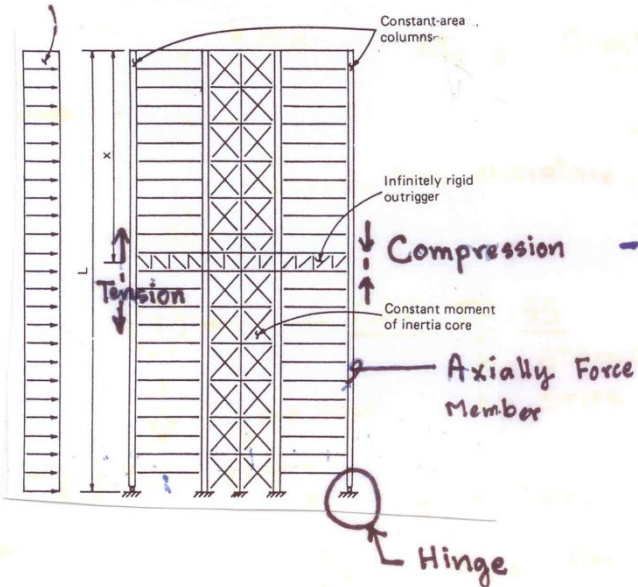 Constant-area
columns
x
Infinitely rigid
outrigger
Compression
L
Tension
Constant moment
of inertia core
Axially Force
Member
Hinge